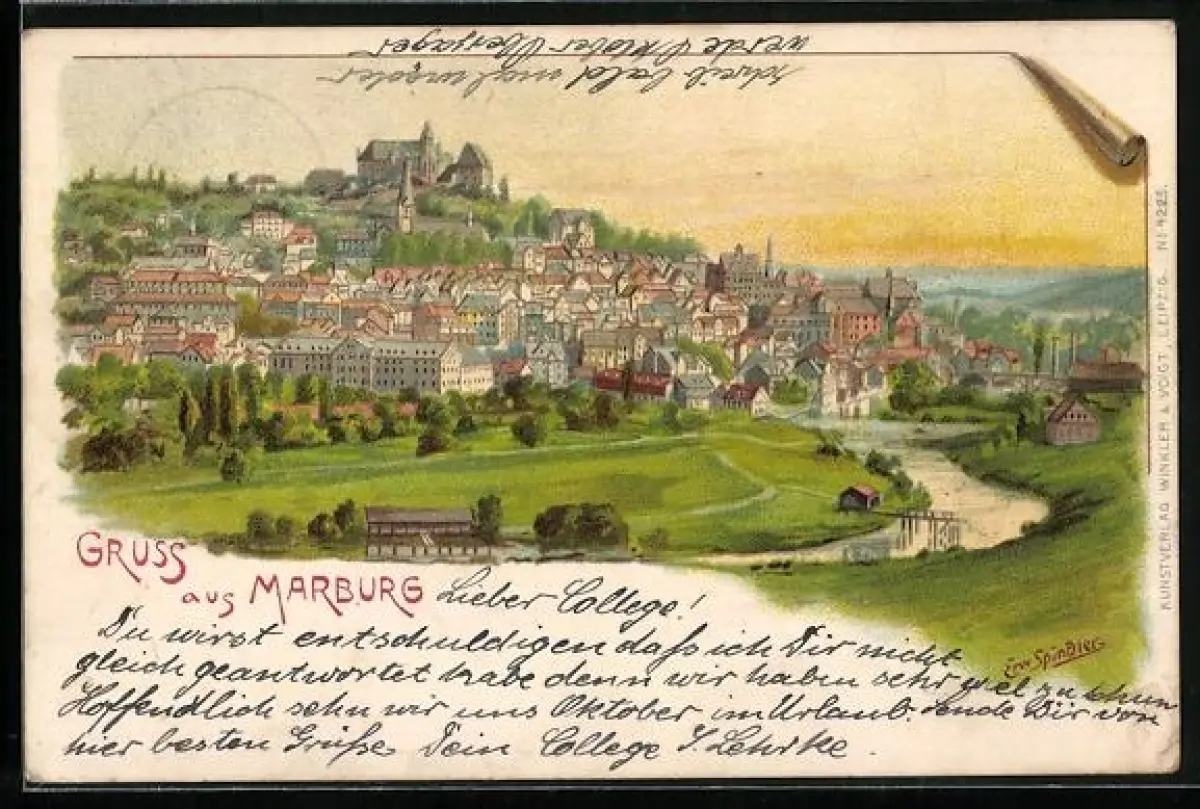 werde Oktober Oberjäger
schreib bald mal wieder
GRUSS
aus MARBURG
Lieber College!
Du wirst entschuldigen daſs ich Dir nicht
gleich geantwortet habe denn wir haben sehr viel zu thun
Hoffendlich sehn wir uns Oktober im Urlaub. sende Dir von
hier besten Grüße Dein College J. Lehrke.
Erw Spindler
KUNSTVERLAG WINKLER & VOIGT, LEIPZIG. No 4225.